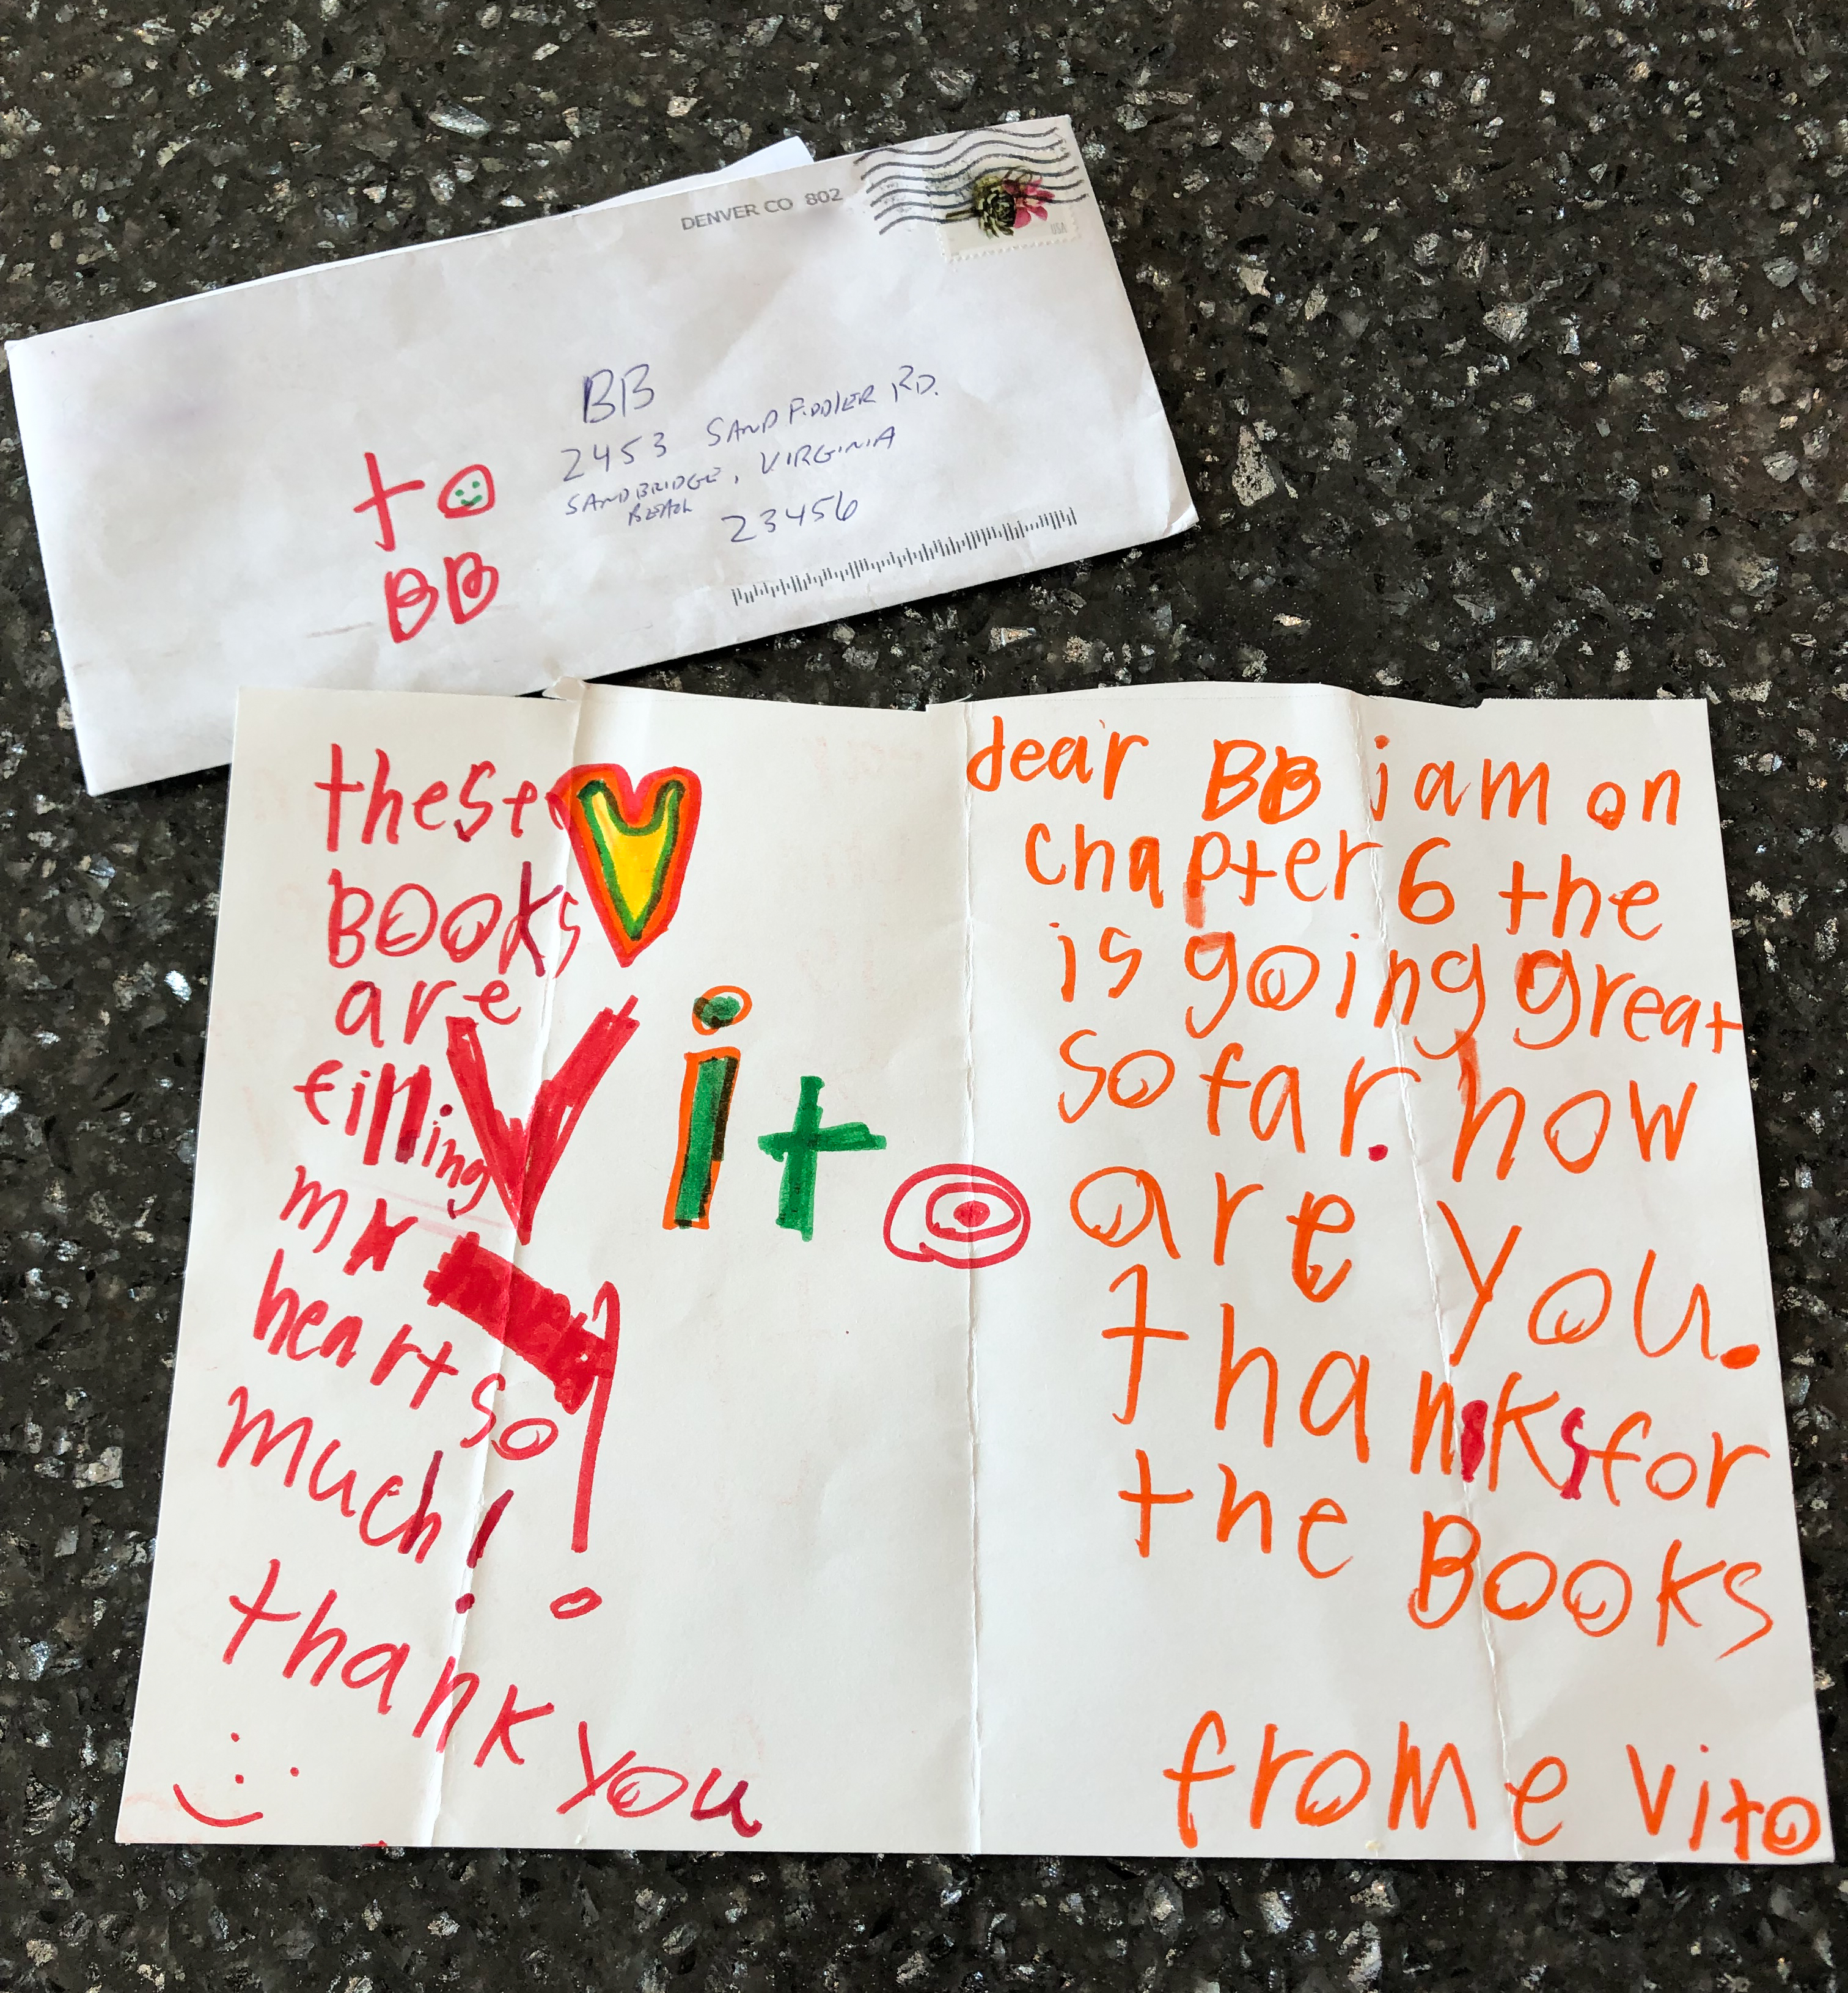 DENVER CO 802
USA
BB
2453 SANDFIDDLER RD.
SANDBRIDGE, VIRGINIA
BEACH
23456
to
BB
these
BOOks
are
filling
my
heart so
much!
thank you
Vito
dear BB i am on
chapter 6 the
is going great
so far. how
are you.
thanks for
the BOOKS
frome Vito